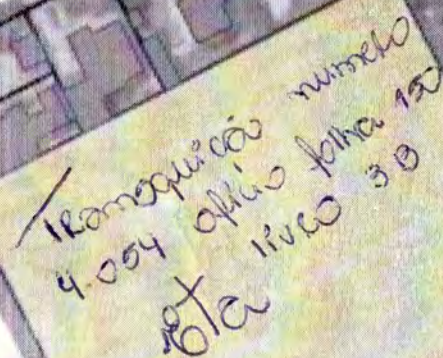 Transquição numero
4.054 oficio folha 150
livro 3B